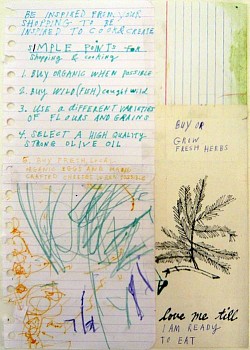 BE INSPIRED FROM YOUR
SHOPPING TO BE
INSPIRED TO COOK & CREATE
SIMPLE POINTS for
shopping & cooking
1. BUY ORGANIC WHEN POSSIBLE
2. BUY WILD (FISH) caught wild
3. USE A DIFFERENT VARIETIES
OF FLOURS AND GRAINS
4. SELECT A HIGH QUALITY-
STRONG OLIVE OIL
5. BUY FRESH LOCAL
ORGANIC EGGS AND HAND
CRAFTED CHEESES WHEN POSSIBLE
BUY OR
GROW
FRESH HERBS
love me till
I AM READY
TO EAT